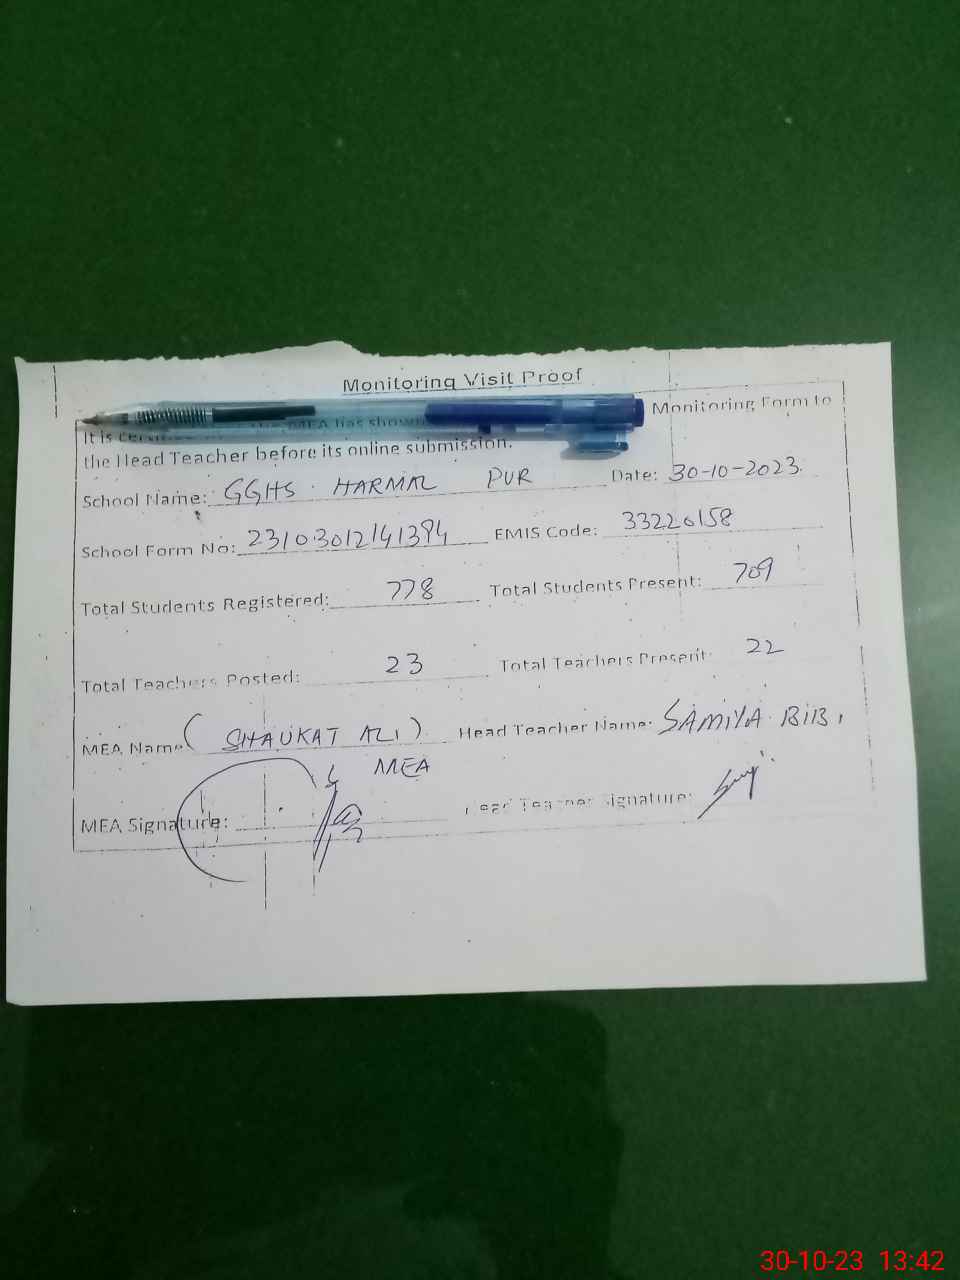 Monitoring Visit Proof
It is the MEA has shown Monitoring Form to
the Head Teacher before its online submission.
School Name: GGHS HARMAL PUR Date: 30-10-2023
School Form No: 23103012141394 EMIS Code: 33220158
Total Students Registered: 778 Total Students Present: 709
Total Teachers Posted: 23 Total Teachers Present: 22
MEA Name (SHAUKAT ALI) Head Teacher Name: SAMIYA BIBI
MEA
MEA Signature: Head Teacher Signature:
30-10-23 13:42